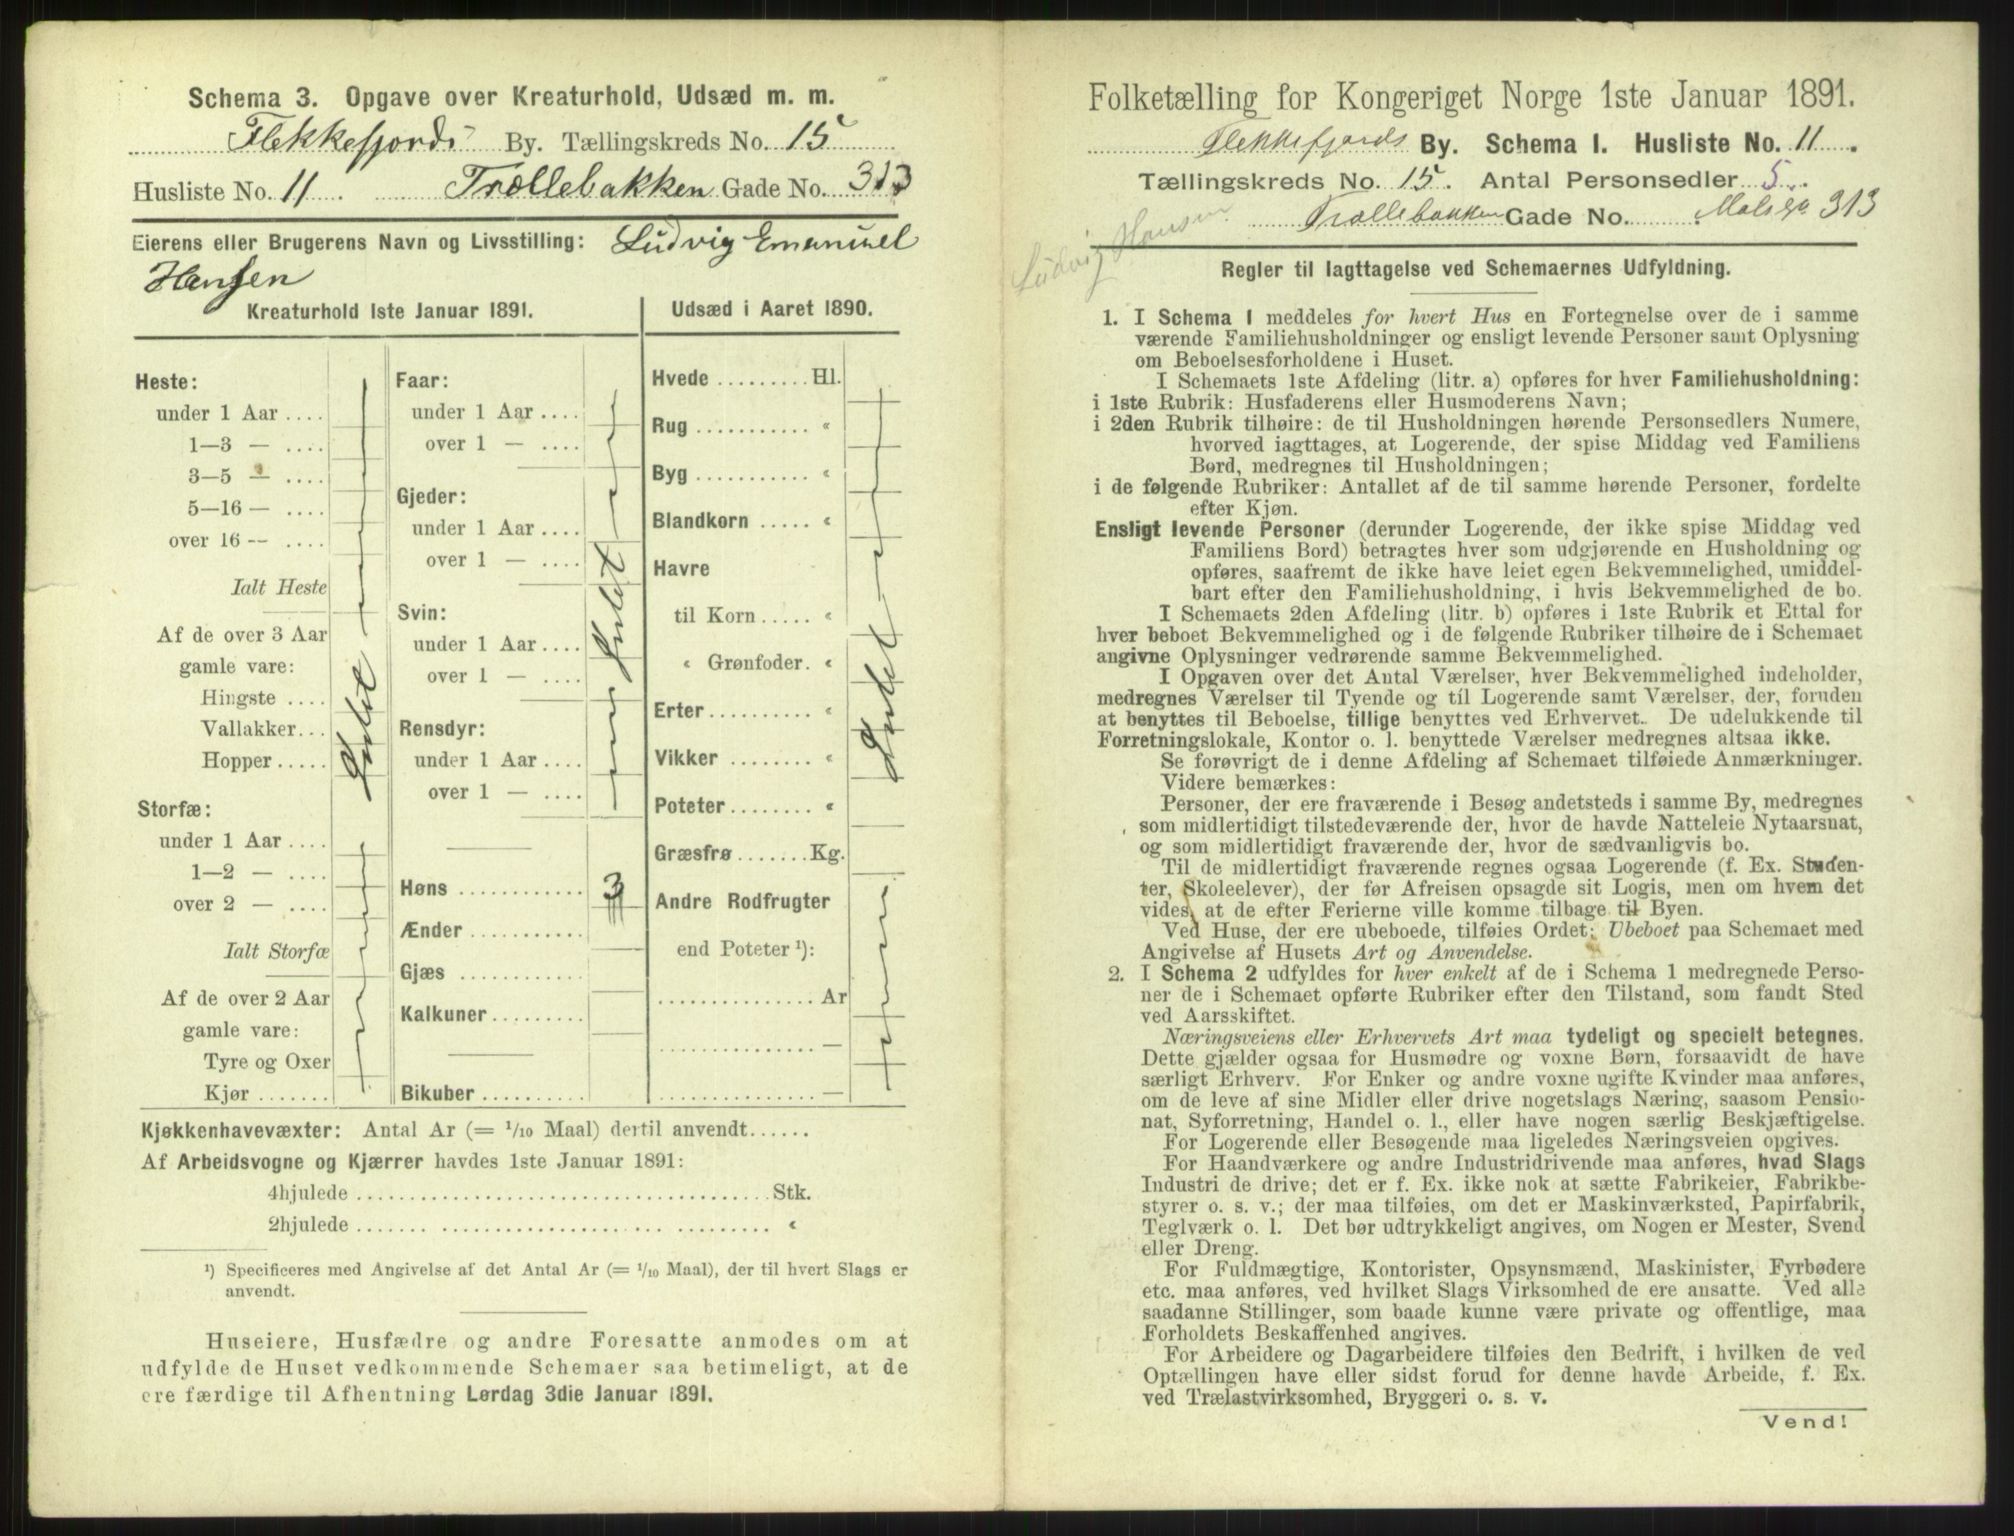 Schema 3. Opgave over Kreaturhold, Udsæd m. m.
Flekkefjords By. Tællingskreds No. 15
Husliste No. 11. Trællebakken Gade No. 313
Eierens eller Brugerens Navn og Livsstilling: Ludvig Emanuel
Hansen
Kreaturhold 1ste Januar 1891.
Heste:
under 1 Aar ....
1—3 — ....
3—5 — ....
5—16 — ....
over 16 -- ....
Ialt Heste
Af de over 3 Aar
gamle vare:
Hingste ....
Vallakker...
Hopper.....
Intet
Storfæ:
under 1 Aar ....
1—2 — ....
over 2 — ....
Ialt Storfæ
Af de over 2 Aar
gamle vare:
Tyre og Oxer
Kjør .......
Faar:
under 1 Aar ....
over 1 — ....
Gjeder:
under 1 Aar ....
over 1 — ....
Intet
Svin:
under 1 Aar ....
over 1 — ....
Rensdyr:
under 1 Aar ....
over 1 — ....
Høns ............ 3
Ænder ...........
Gjæs ............
Kalkuner.........
Bikuber ..........
Udsæd i Aaret 1890.
Hvede ......... Hl.
Rug ........... «
Byg ........... «
Blandkorn ..... «
Havre
til Korn..... «
« Grønfoder. «
Intet
Erter.......... «
Vikker ........ «
Poteter........ «
Græsfrø.......Kg.
Andre Rodfrugter
end Poteter ¹):
............... Ar
............... —
............... —
Kjøkkenhavevæxter: Antal Ar (= 1/10 Maal) dertil anvendt......
Af Arbeidsvogne og Kjærrer havdes 1ste Januar 1891:
4hjulede ....................................... Stk.
2hjulede ....................................... «
¹) Specificeres med Angivelse af det Antal Ar (= 1/10 Maal), der til hvert Slags er
anvendt.
Huseiere, Husfædre og andre Foresatte anmodes om at
udfylde de Huset vedkommende Schemaer saa betimeligt, at de
ere færdige til Afhentning Lørdag 3die Januar 1891.
Folketælling for Kongeriget Norge 1ste Januar 1891.
Flekkefjords By. Schema I. Husliste No. 11.
Tællingskreds No. 15. Antal Personsedler 5.
Trællebakken Gade No. 313
Ludvig Hansen
Regler til Iagttagelse ved Schemaernes Udfyldning.
1. I Schema 1 meddeles for hvert Hus en Fortegnelse over de i samme
værende Familiehusholdninger og ensligt levende Personer samt Oplysning
om Beboelsesforholdene i Huset.
I Schemaets 1ste Afdeling (litr. a) opføres for hver Familiehusholdning:
i 1ste Rubrik: Husfaderens eller Husmoderens Navn;
i 2den Rubrik tilhøire: de til Husholdningen hørende Personsedlers Numere,
hvorved iagttages, at Logerende, der spise Middag ved Familiens
Bord, medregnes til Husholdningen;
i de følgende Rubriker: Antallet af de til samme hørende Personer, fordelte
efter Kjøn.
Ensligt levende Personer (derunder Logerende, der ikke spise Middag ved
Familiens Bord) betragtes hver som udgjørende en Husholdning og
opføres, saafremt de ikke have leiet egen Bekvemmelighed, umiddel-
bart efter den Familiehusholdning, i hvis Bekvemmelighed de bo.
I Schemaets 2den Afdeling (litr. b) opføres i 1ste Rubrik et Ettal for
hver beboet Bekvemmelighed og i de følgende Rubriker tilhøire de i Schemaet
angivne Oplysninger vedrørende samme Bekvemmelighed.
I Opgaven over det Antal Værelser, hver Bekvemmelighed indeholder,
medregnes Værelser til Tyende og til Logerende samt Værelser, der, foruden
at benyttes til Beboelse, tillige benyttes ved Erhvervet. De udelukkende til
Forretningslokale, Kontor o. l. benyttede Værelser medregnes altsaa ikke.
Se forøvrigt de i denne Afdeling af Schemaet tilføiede Anmærkninger.
Videre bemærkes:
Personer, der ere fraværende i Besøg andetsteds i samme By, medregnes
som midlertidigt tilstedeværende der, hvor de havde Natteleie Nytaarsnat,
og som midlertidigt fraværende der, hvor de sædvanligvis bo.
Til de midlertidigt fraværende regnes ogsaa Logerende (f. Ex. Studen-
ter, Skoleelever), der før Afreisen opsagde sit Logis, men om hvem det
vides, at de efter Ferierne ville komme tilbage til Byen.
Ved Huse, der ere ubeboede, tilføies Ordet: Ubeboet paa Schemaet med
Angivelse af Husets Art og Anvendelse.
2. I Schema 2 udfyldes for hver enkelt af de i Schema 1 medregnede Perso-
ner de i Schemaet opførte Rubriker efter den Tilstand, som fandt Sted
ved Aarsskiftet.
Næringsveiens eller Erhvervets Art maa tydeligt og specielt betegnes.
Dette gjælder ogsaa for Husmødre og voxne Børn, forsaavidt de have
særligt Erhverv. For Enker og andre voxne ugifte Kvinder maa anføres,
om de leve af sine Midler eller drive nogetslags Næring, saasom Pensio-
nat, Syforretning, Handel o. l., eller have nogen særlig Beskjæftigelse.
For Logerende eller Besøgende maa ligeledes Næringsveien opgives.
For Haandværkere og andre Industridrivende maa anføres, hvad Slags
Industri de drive; det er f. Ex. ikke nok at sætte Fabrikeier, Fabrikbe-
styrer o. s. v.; der maa tilføies, om det er Maskinværksted, Papirfabrik,
Teglværk o. l. Det bør udtrykkeligt angives, om Nogen er Mester, Svend
eller Dreng.
For Fuldmægtige, Kontorister, Opsynsmænd, Maskinister, Fyrbødere
etc. maa anføres, ved hvilket Slags Virksomhed de ere ansatte. Ved alle
saadanne Stillinger, som baade kunne være private og offentlige, maa
Forholdets Beskaffenhed angives.
For Arbeidere og Dagarbeidere tilføies den Bedrift, i hvilken de ved
Optællingen have eller sidst forud for denne havde Arbeide, f. Ex.
ved Trælastvirksomhed, Bryggeri o. s. v.
Vend!